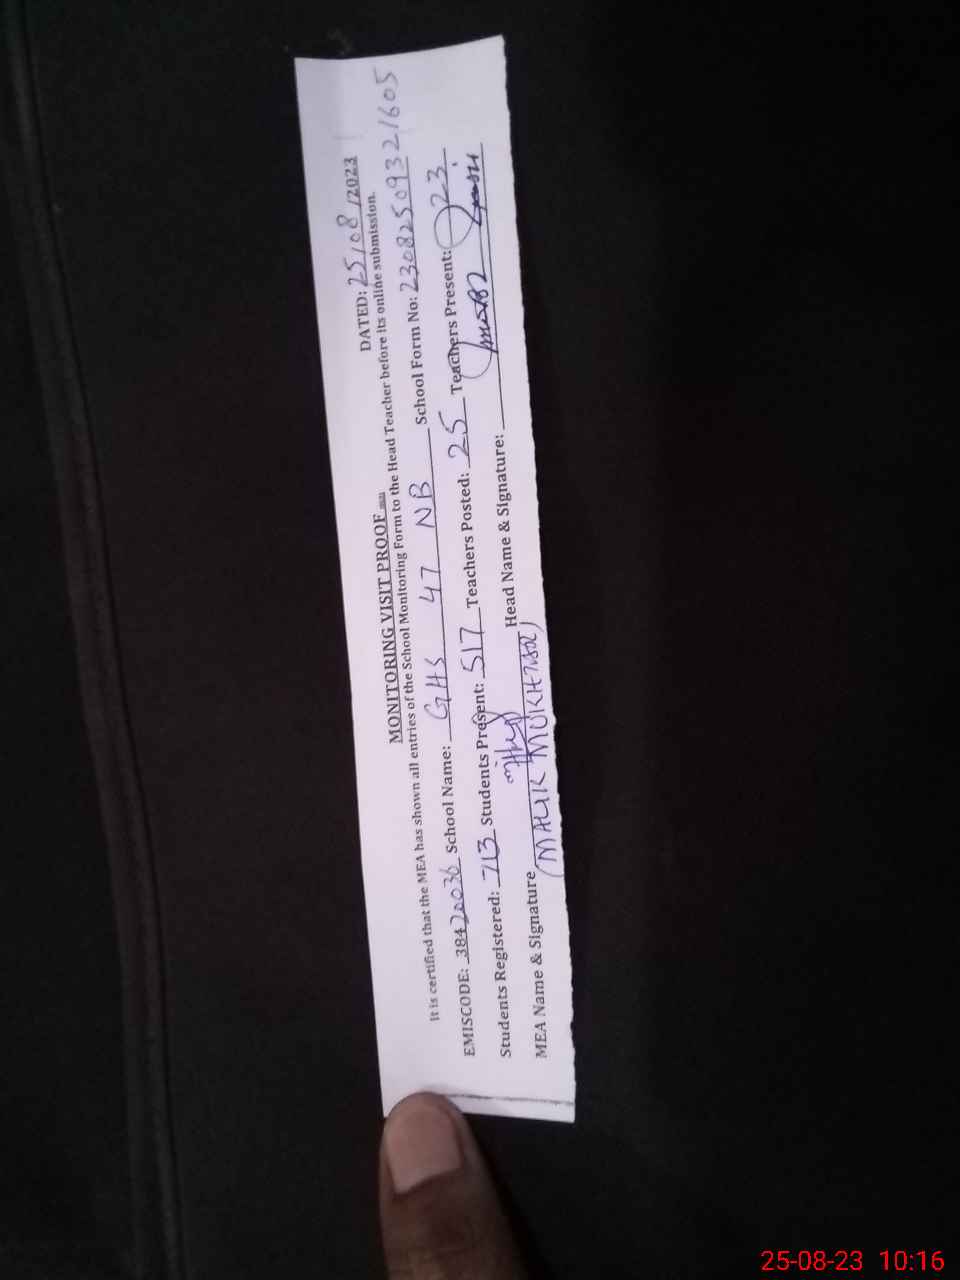 DATED: 25/08/2023
MONITORING VISIT PROOF
It is certified that the MEA has shown all entries of the School Monitoring Form to the Head Teacher before its online submission.
EMISCODE: 38420036 School Name: GHS 47 NB School Form No: 23082509321605
Students Registered: 713 Students Present: 517 Teachers Posted: 25 Teachers Present: 23
MEA Name & Signature Head Name & Signature:
(MALIK MUKHTAR)
25-08-23 10:16